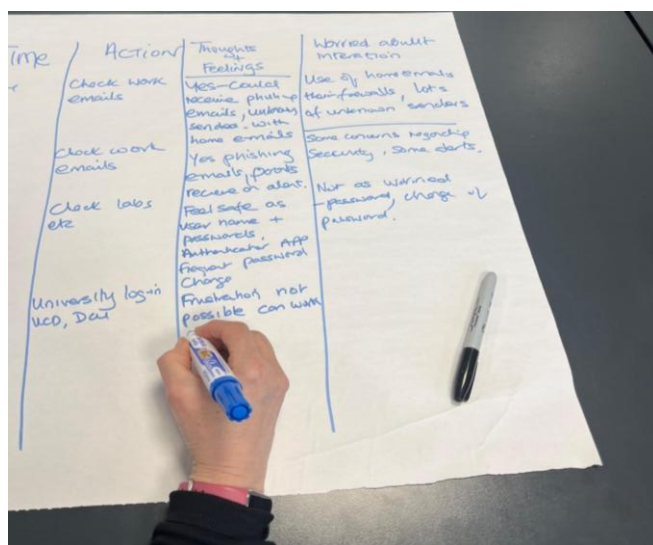 Time
Action
Check work
emails
Check work
emails
Check labs
etc
University log-in
UCD, DCU
Thoughts
+
Feelings
Yes-Could
receive phishing
emails, unknown
sender. with
home emails
Yes phishing
emails, posts
receive an alert.
Feel safe as
user name +
passwords,
Authenticator App
frequent password
Change
Frustration not
possible can work
Worried about
interaction
Use of home emails
their firewalls, lot's
of unknown senders
Some concerns regarding
Security, Some alerts.
Not as worried
-password, change of
password.